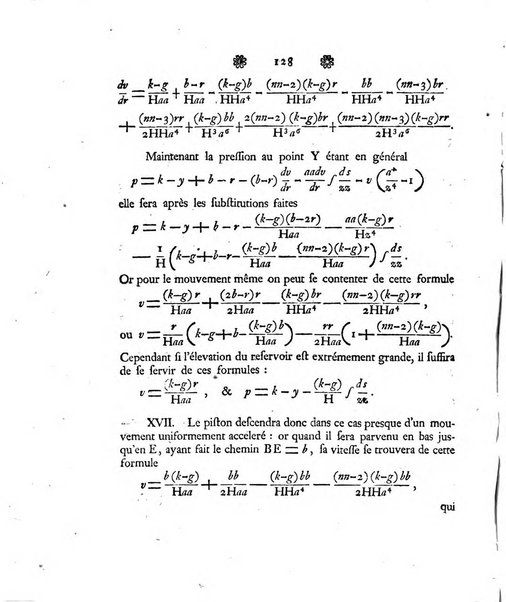 128
dv/dr = (k-g)/Haa + (b-r)/Haa - (k-g)b/HHa⁴ - (nn-2)(k-g)r/HHa⁴ - bb/HHa⁴ - (nn-3)br/HHa⁴
+ (nn-3)rr/2HHa⁴ + (k-g)bb/H³a⁶ + 2(nn-2)(k-g)br/H³a⁶ + (nn-2)(nn-3)(k-g)rr/2H³a⁶.
Maintenant la preſſion au point Y étant en général
p = k - y + b - r - (b-r) dv/dr - aadv/dr ∫ ds/zz - v (a⁴/z⁴ - 1)
elle ſera après les ſubſtitutions faites
p = k - y + b - r - (k-g)(b-2r)/Haa - aa(k-g)r/Hz⁴
- 1/H (k-g+b-r - (k-g)b/Haa - (nn-2)(k-g)r/Haa) ∫ ds/zz.
Or pour le mouvement même on peut ſe contenter de cette formule
v = (k-g)r/Haa + (2b-r)r/2Haa - (k-g)br/HHa⁴ - (nn-2)(k-g)rr/2HHa⁴,
ou v = r/Haa (k-g+b - (k-g)b/Haa) - rr/2Haa (1 + (nn-2)(k-g)/Haa).
Cependant ſi l'élevation du reſervoir eſt extrémement grande, il ſuffira
de ſe ſervir de ces formules :
v = (k-g)r/Haa, & p = k - y - (k-g)/H ∫ ds/zz.
XVII. Le piſton deſcendra donc dans ce cas presque d'un mou-
vement uniformement acceleré : or quand il ſera parvenu en bas jus-
qu'en E, ayant fait le chemin BE = b, ſa viteſſe ſe trouvera de cette
formule
v = b(k-g)/Haa + bb/2Haa - (k-g)bb/HHa⁴ - (nn-2)(k-g)bb/2HHa⁴,
qui